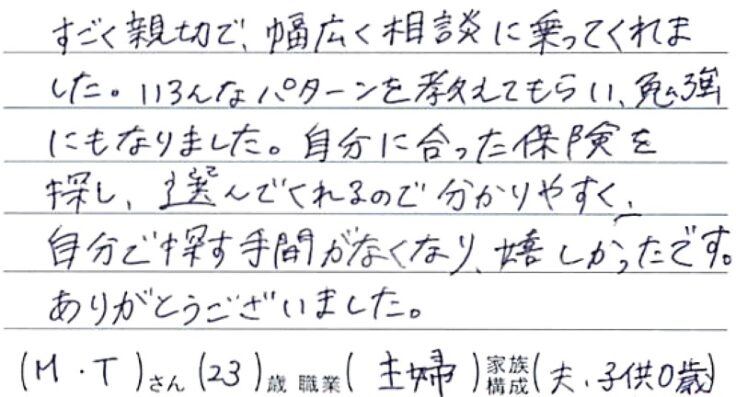 すごく親切で、幅広く相談に乗ってくれま
した。いろんなパターンを教えてもらい、勉強
にもなりました。自分に合った保険を
探し、選んでくれるので分かりやすく、
自分で探す手間がなくなり、嬉しかったです。
ありがとうございました。
(M・T)さん(23)歳 職業(主婦)家族構成(夫、子供0歳)